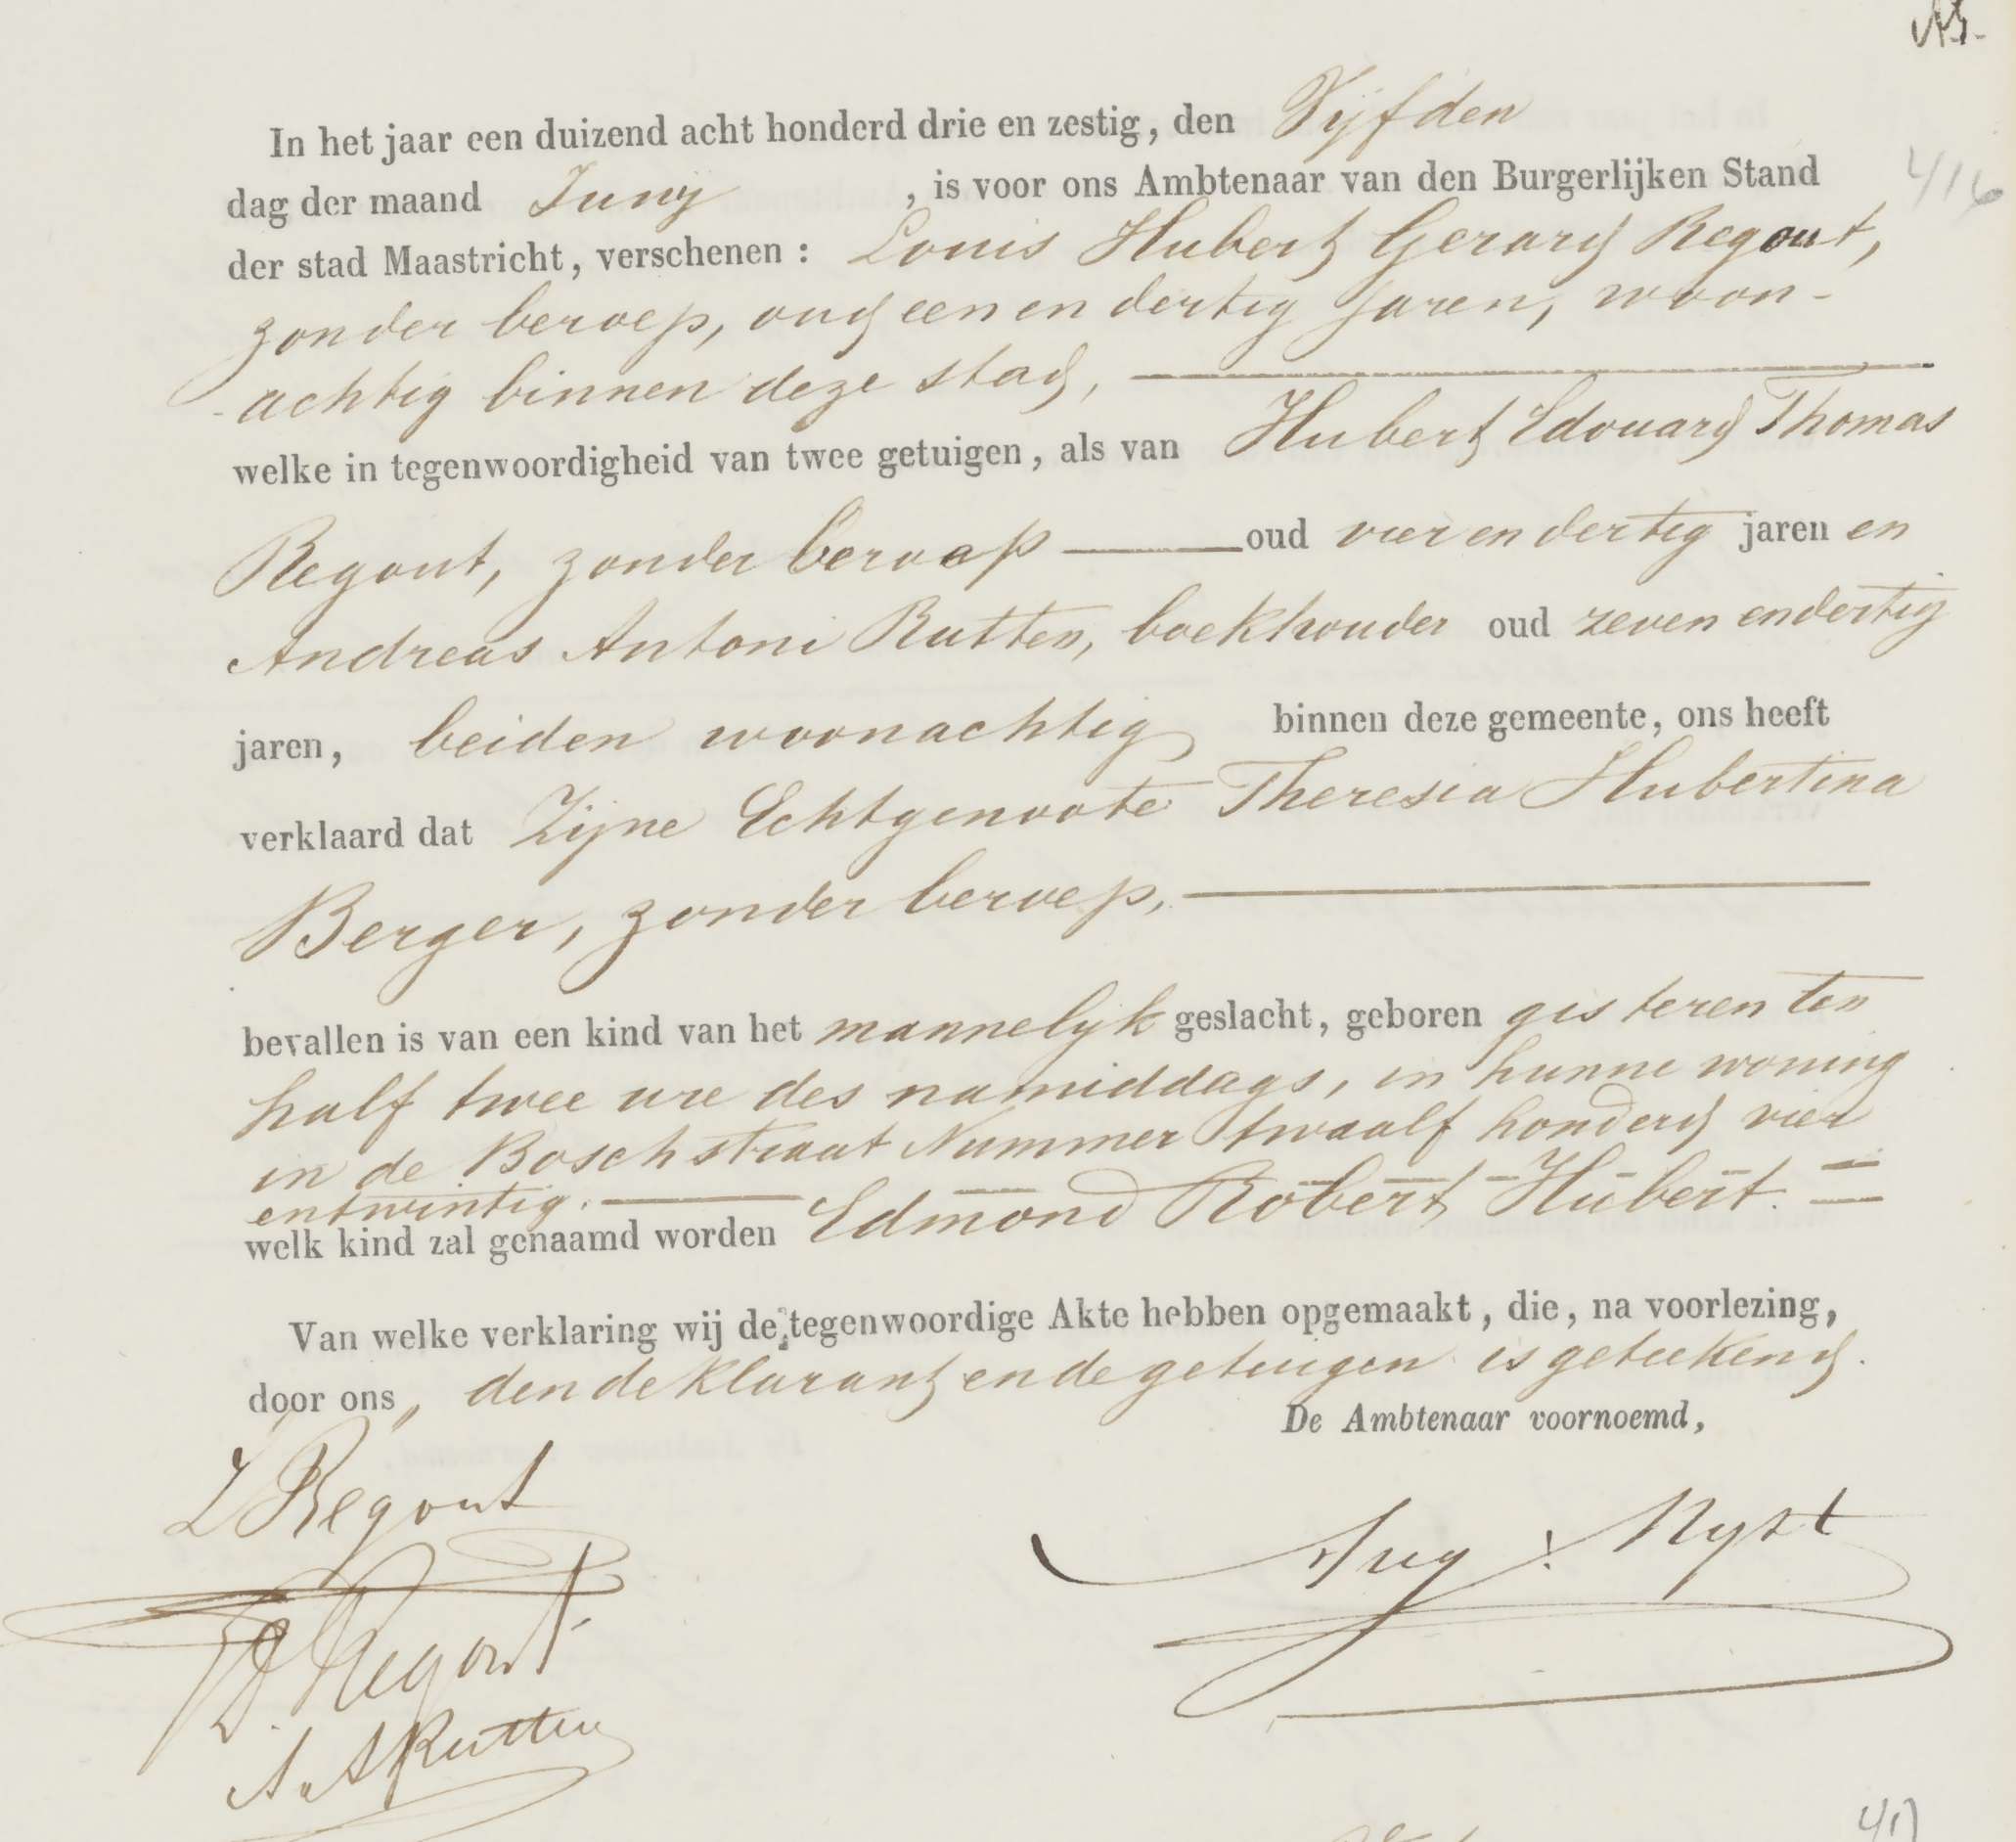 In het jaar een duizend acht honderd drie en zestig, den Vijfden
416
dag der maand Juny , is voor ons Ambtenaar van den Burgerlijken Stand
der stad Maastricht, verschenen : Louis Hubert Gerard Regout,
zonder beroep, oud een en dertig jaren, woon-
achtig binnen deze stad,
welke in tegenwoordigheid van twee getuigen, als van Hubert Edouard Thomas
Regout, zonder beroep oud vier en dertig jaren en
Andreas Antoni Rutten, boekhouder oud zeven en dertig
jaren, beiden woonachtig binnen deze gemeente, ons heeft
verklaard dat Zijne Echtgenoote Theresia Hubertina
Berger, zonder beroep,
bevallen is van een kind van het mannelyk geslacht, geboren gisteren ten
half twee ure des namiddags, in hunne woning
in de Boschstraat Nummer twaalf honderd vier
entwintig.
welk kind zal genaamd worden Edmond Robert Hubert.
Van welke verklaring wij de tegenwoordige Akte hebben opgemaakt, die, na voorlezing,
door ons, den deklarant en de getuigen is geteekend.
De Ambtenaar voornoemd,
L Regout
Aug. Nyst
Regout
A. A Rutten
417